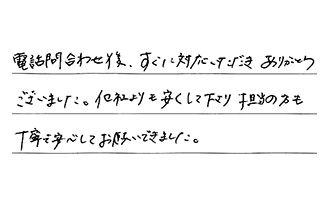 電話問合わせ後、すぐに対応いただき ありがとう
ございました。他社よりも安くして下さり 担当の方も
丁寧で安心してお願いできました。